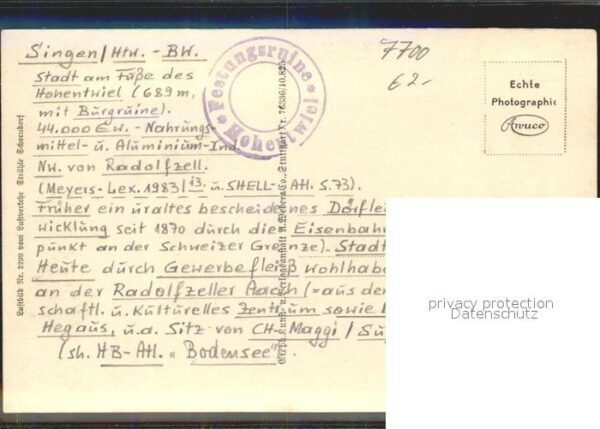 Singen/Htw. - BW.
Stadt am Fuße des
Hohentwiel (689 m,
mit Burgruine).
44.000 Ew. - Nahrungs-
mittel- u. Aluminium-Ind.
Nw. von Radolfzell.
(Meyers-Lex. 1983/13. u. SHELL-Atl. S.73).
Früher ein uraltes bescheidenes Dörflei
wicklung seit 1870 durch die Eisenbahn
punkt an der Schweizer Grenze). Stadt
Heute durch Gewerbefleiß wohlhabe
an der Radolfzeller Aach (=aus der
schaftl. u. kulturelles Zentrum sowie
Hegaus, u.a. Sitz von CH-Maggi / Sü
(sh. HB-Atl. "Bodensee".
* Festungsruine *
Hohentwiel
7700
62-
Echte
Photographie
Awuco
Luftbild Nr. 2299 vom Luftverkehr Strähle Schorndorf
privacy protection
Datenschutz